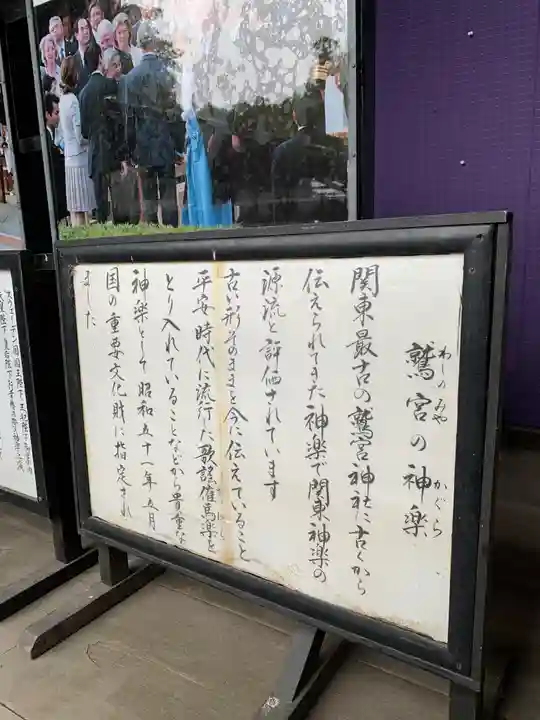 鷲宮の神楽
わしのみや かぐら
関東最古の鷲宮神社に古くから
伝えられてきた神楽で関東神楽の
源流と評価されています
古い形そのままを今に伝えていること
平安時代に流行した歌謡催馬楽を
とり入れていることなどから貴重な
神楽として昭和五十一年五月
国の重要文化財に指定され
ました